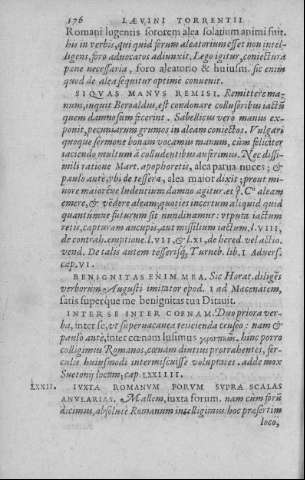 176 LÆVINI TORRENTII
Romani lugentis sororem alea solatium animi fuit.
his in verbis, qui quid forum aleatorium esset non intel-
ligens, foro aduocatos adiunxit. Lego igitur, coniectura
pene necessaria, foro aleatorio & huiusm. sic enim
quod de alea sequitur optime conuenit.
SI QVAS MANVS REMISI. Remittere ma-
num, inquit Beroaldus, est condonare collusoribus iactũ
quem damnosum fecerint. Sabellicus verò manus ex-
ponit, pecuniarum grumos in aleam coniectos. Vulgari
quoque sermone bonam vocamus manum, cùm feliciter
iaciendo multum à colludentibus auferimus. Nec dissi-
mili ratione Mart. apophoretis, alea parua nuces; &
paulo ante, vbi de tessera, alea maior dixit; prout mi-
nore maioréve ludentium damno agitur. et
emere, & vẽdere aleam; quoties incertum aliquid quid
quantumne futurum sit nundinamur: vtputa iactum
retis, capturam aucupis, aut missilium iactum, l. VIII,
de contrah. emptione. l. VII, & l. XI, de hered. vel actio.
vend. De talis autem tesserisq́; Turneb. lib. I Aduers.
cap. VI.
BENIGNITAS ENIM MEA. Sic Horat. diligẽs
verborum Augusti imitator epod. I ad Mæcenatem,
satis superque me benignitas tua Ditauit.
INTER SE INTER COENAM. Duo priora ver-
ba, inter se, vt superuacanea reiicienda censeo: nam &
paulo ante, inter cœnam lusimus hinc porro
colligimus Romanos, cœnam diutius protrahentes, ser-
culis huiusmodi intermiscuisse voluptates. adde mox
Suetonij locum, cap. LXXIIII.
LXXII. IVXTA ROMANVM FORVM SVPRA SCALAS
ANVLARIAS. Mallem, iuxta forum. nam cùm forũ
dicimus, absolute Romanum intelligimus. hoc præsertim
loco,